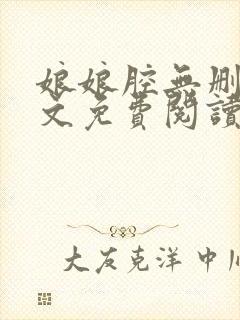 娘娘腔無刪
文免費閱讀
大友克洋 中川